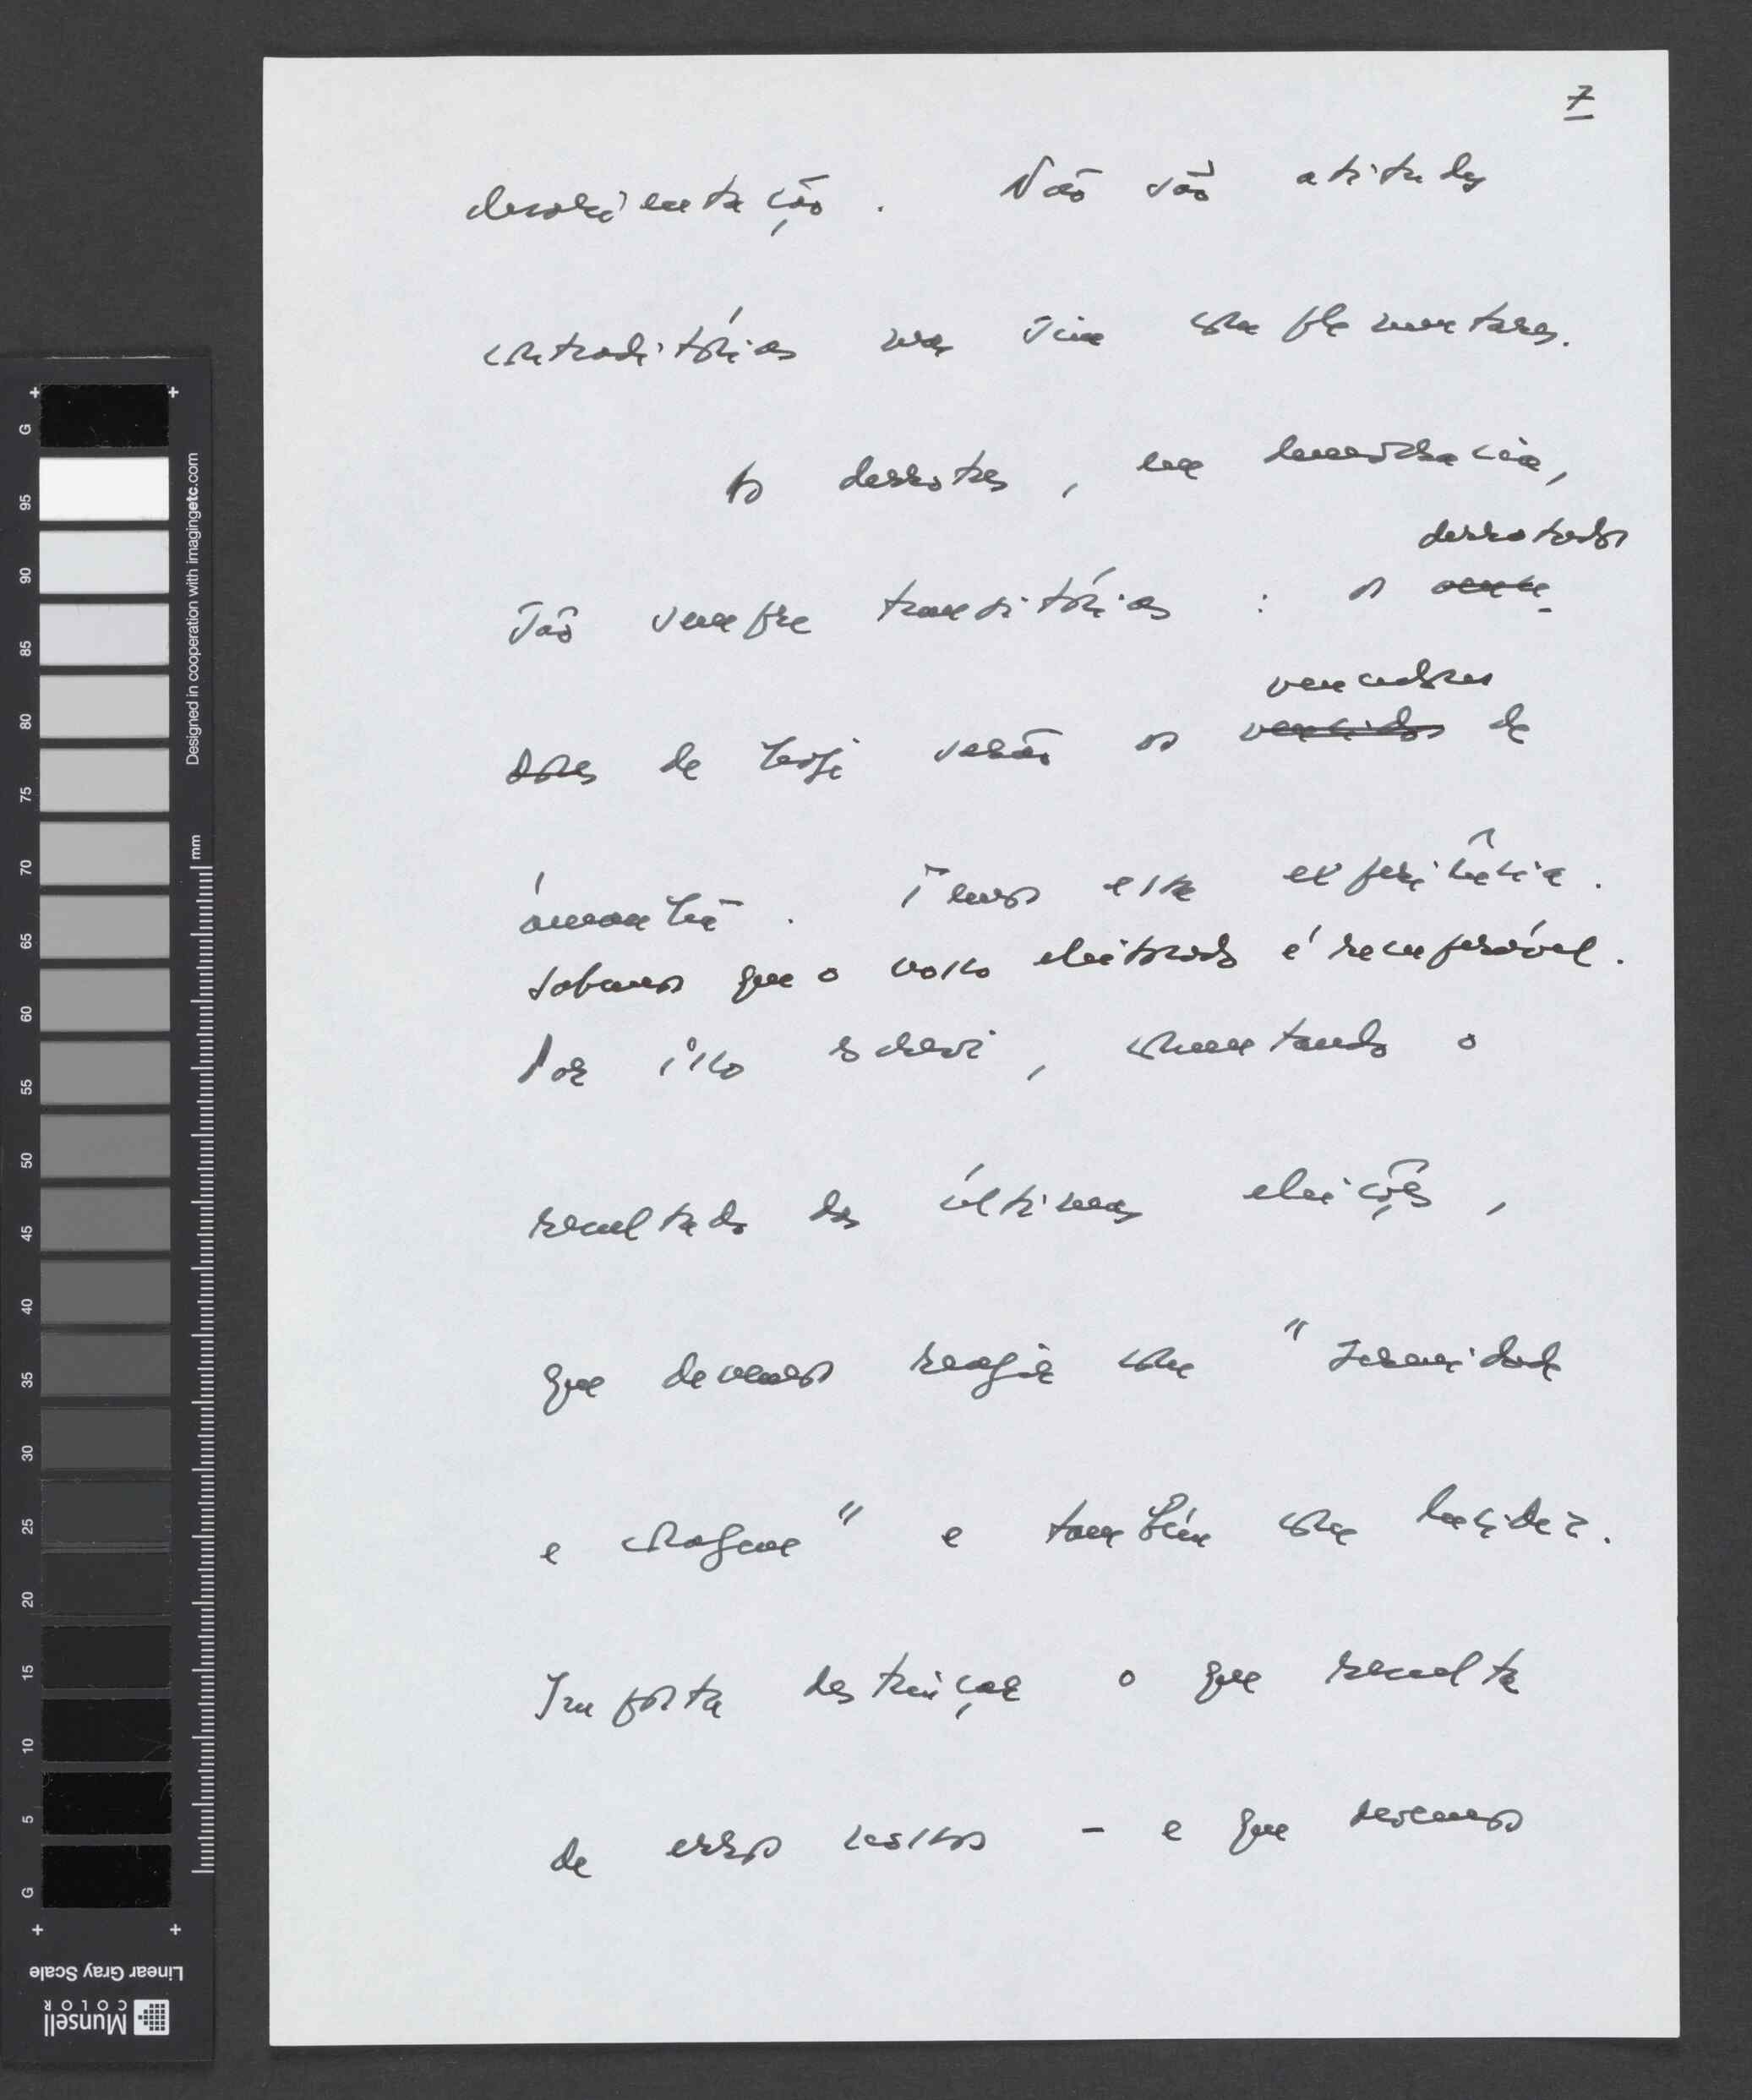 7
desorientação. Não são atitudes
contraditórias mas sim complementares.
As derrotas, em democracia,
derrotados
são sempre transitórias: os vence-
vencedores
dores de hoje serão os vencidos de
amanhã. Temos essa experiência.
Sabemos que o nosso eleitorado é recuperável.
Por isso escrevi, comentando o
resultado das últimas eleições,
que devemos reagir com "serenidade
e coragem" e também com lucidez.
Importa destrinçar o que resulta
de erros nossos - e que devemos
G
95
90
85
80
75
70
65
60
55
50
45
40
35
30
25
20
15
10
5
G
Designed in cooperation with imagingetc.com
mm
Linear Gray Scale
Munsell
COLOR